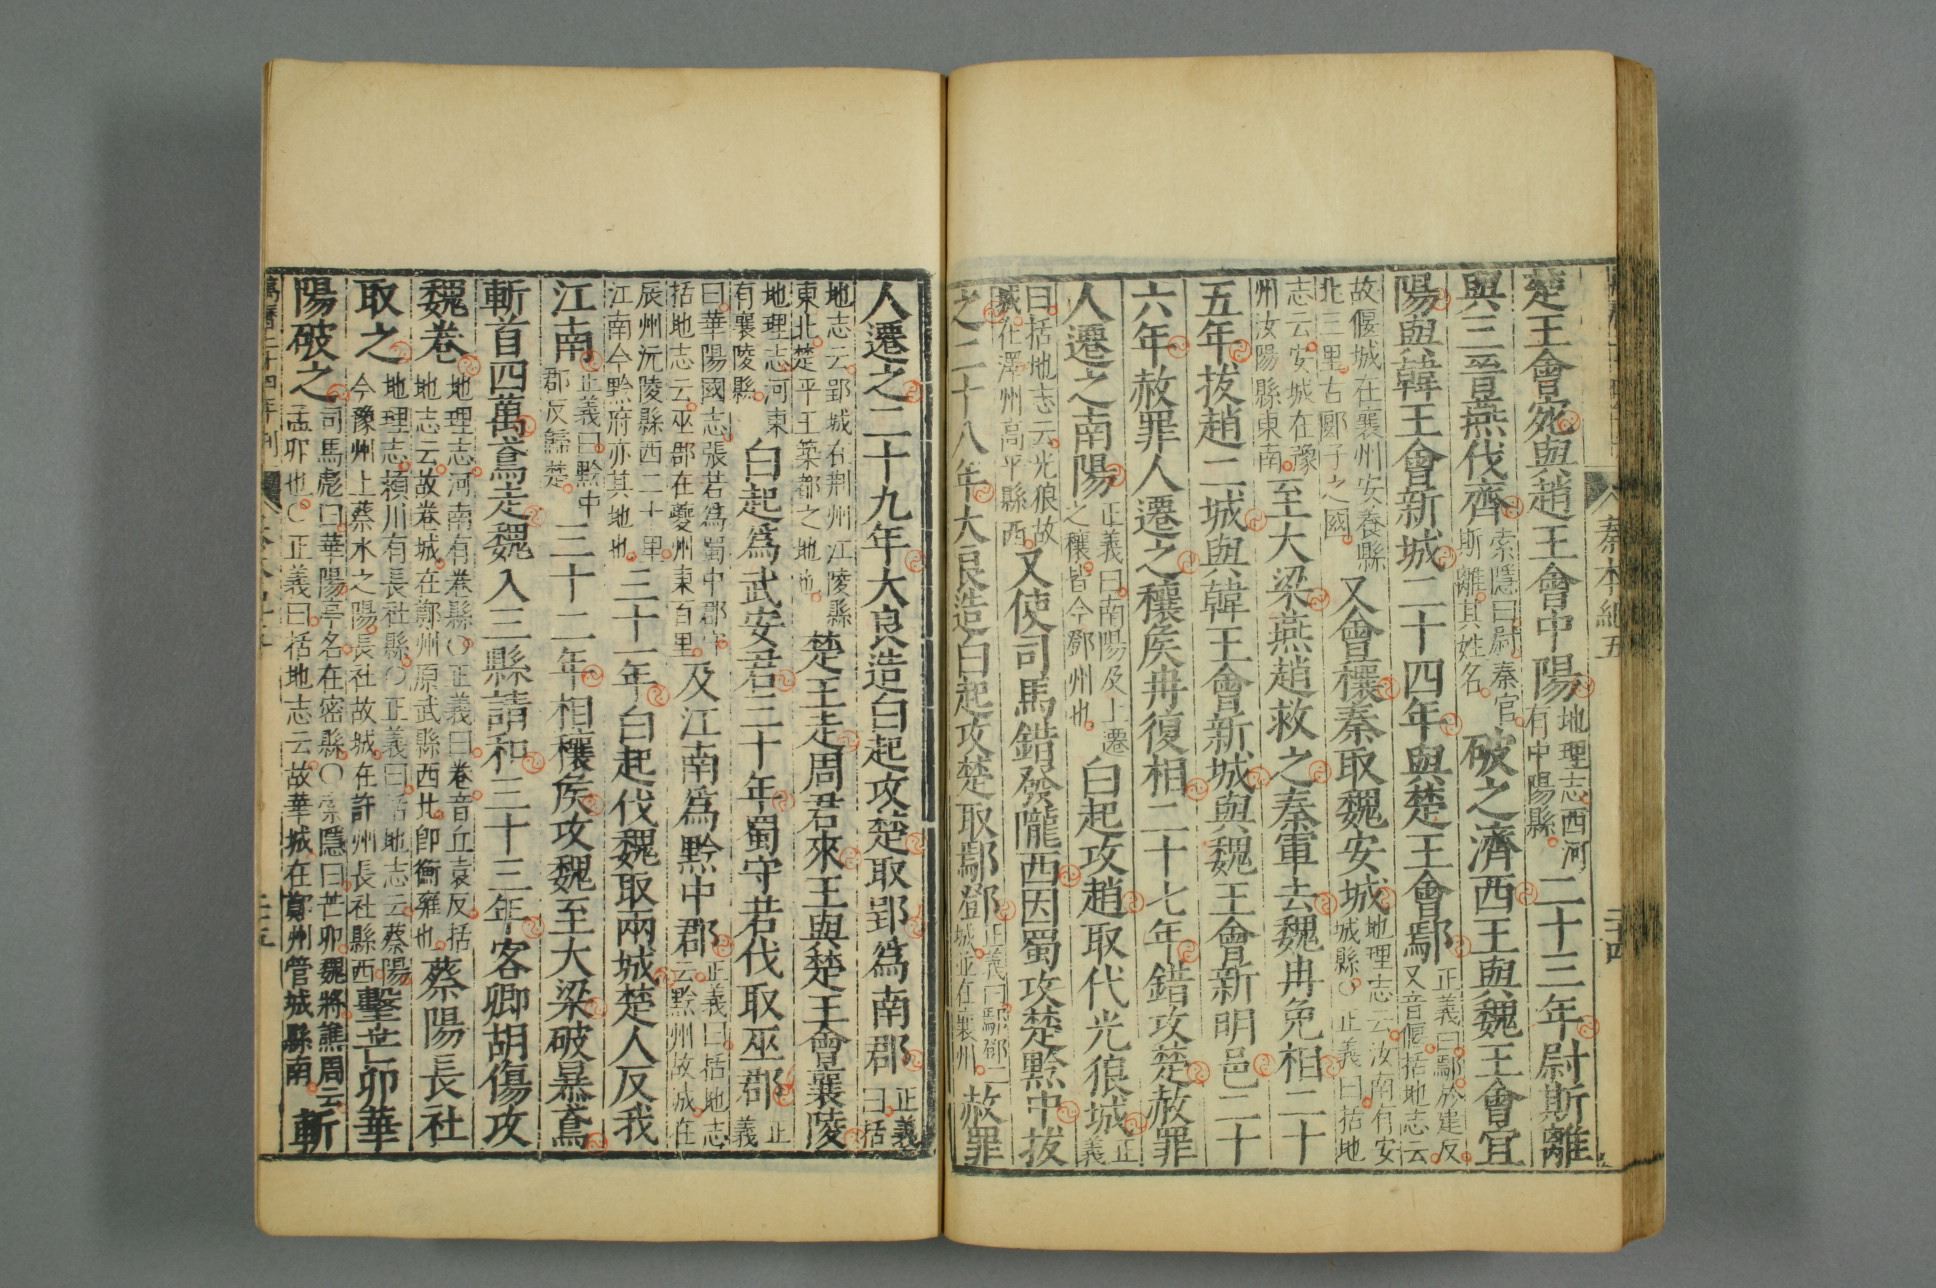 秦本紀五　二十四
楚王會宛與趙王會中陽地理志西河有中陽縣二十三年尉斯離
與三晉燕伐齊索隱曰尉秦官斯離其姓名破之濟西王與魏王會宜
陽與韓王會新城二十四年與楚王會鄢正義曰鄢於建反又音偃括地志云
故偃城在襄州安養縣北三里古郾子之國又會穰秦取魏安城地理志云汝南有安城縣○正義曰括地
志云安城在豫州汝陽縣東南至大梁燕趙救之秦軍去魏冉免相二十
五年拔趙二城與韓王會新城與魏王會新明邑二十
六年赦罪人遷之穰侯冉復相二十七年錯攻楚赦罪
人遷之南陽正義曰南陽及上遷之穰皆今鄧州也白起攻趙取代光狼城正義
曰括地志云光狼故城在澤州高平縣西又使司馬錯發隴西因蜀攻楚黔中拔
之二十八年大良造白起攻楚取鄢鄧正義曰鄢鄧二城並在襄州赦罪
人遷之二十九年大良造白起攻楚取郢爲南郡正義曰括
地志云郢城在荆州江陵縣東北楚平王築都之地也楚王走周君來王與楚王會襄陵
地理志河東有襄陵縣白起爲武安君三十年蜀守若伐取巫郡正義
曰華陽國志張若爲蜀中郡守括地志云巫郡在夔州東百里及江南爲黔中郡正義曰括地志云黔州故城在
辰州沅陵縣西二十里江南今黔府亦其地也三十一年白起伐魏取兩城楚人反我
江南正義曰黔中郡反歸楚三十二年相穰侯攻魏至大梁破暴鳶
斬首四萬鳶走魏入三縣請和三十三年客卿胡傷攻
魏卷地理志河南有卷縣○正義曰卷音丘袁反括地志云故卷城在鄭州原武縣西北卽衡雍也蔡陽長社
取之地理志潁川有長社縣○正義曰括地志云蔡陽今豫州上蔡水之陽長社故城在許州長社縣西擊芒卯華
陽破之司馬彪曰華陽亭名在密縣○索隱曰芒卯魏將譙周云孟卯也○正義曰括地志云故華城在鄭州管城縣南斬
萬曆二十四年刊　二十五